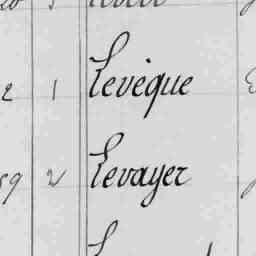 2 1 Levêque
59 2 Levayer